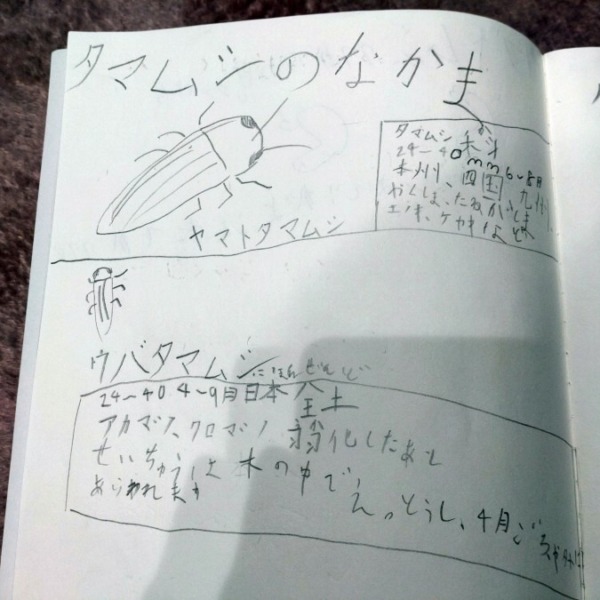 タマムシのなかま
タマムシ科
24〜40mm 6〜8月
本州、四国、九州、
やくしま、たねがしま
エノキ、ケヤキなど
ヤマトタマムシ
ウバタマムシ にほんぜんど
24〜40 4〜9月 日本全土
アカマツ、クロマツ 羽化したあと
せいちゅうは木の中で、
えっとうし、4月ごろ
あらわれます